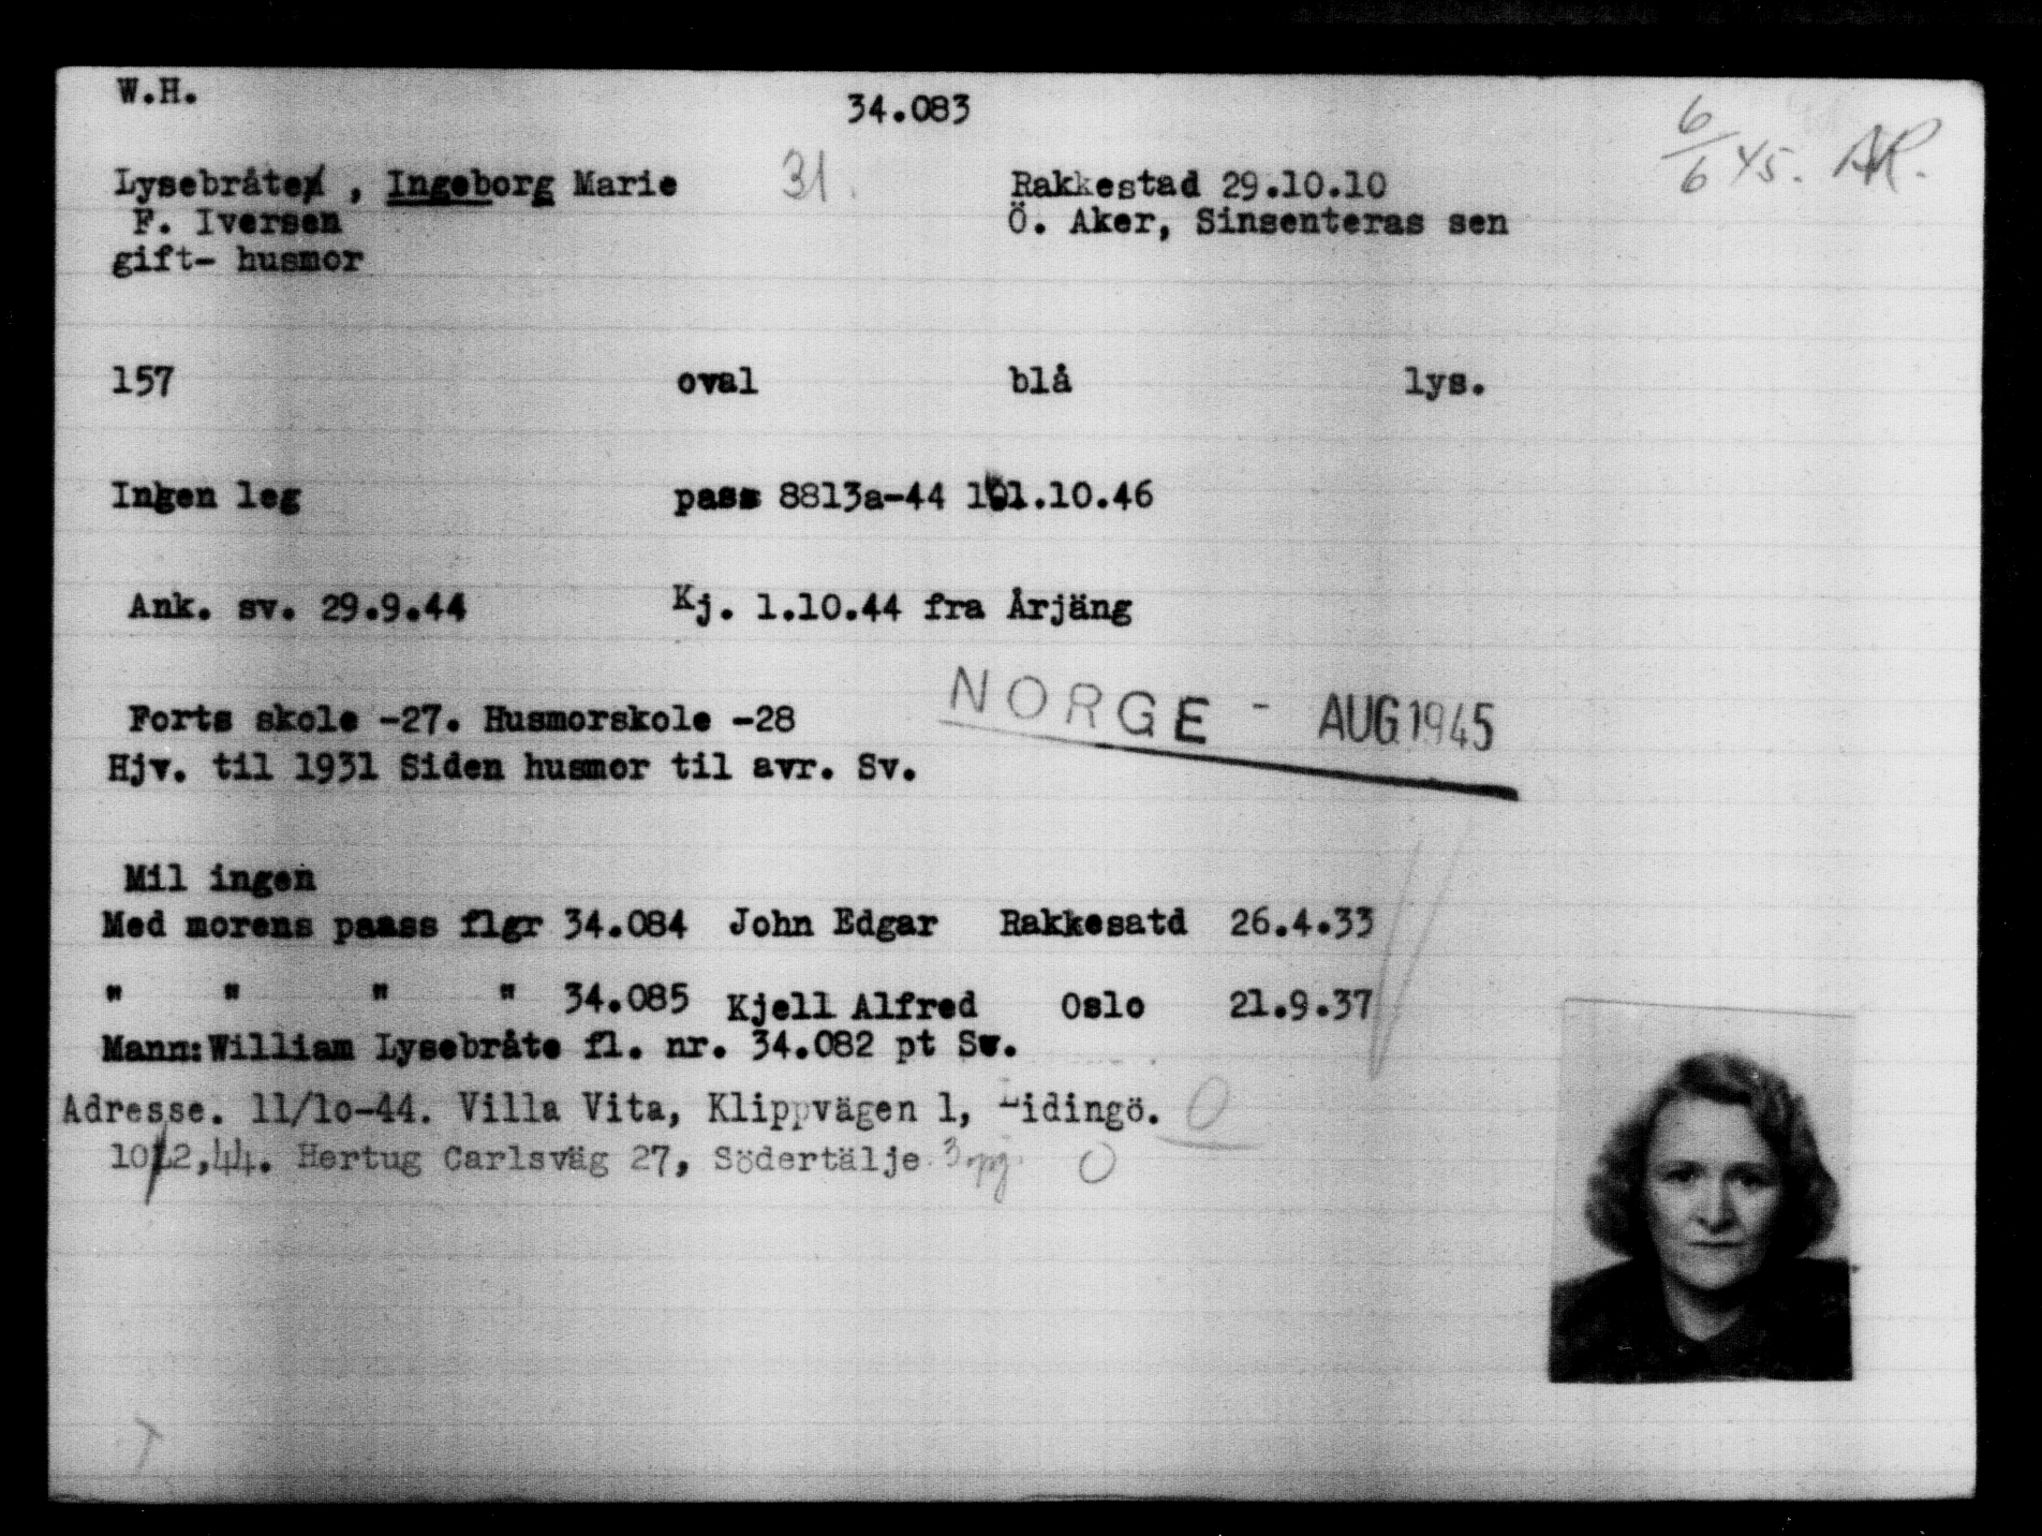 W.H.
34.083
6/6 45. AR.
Lysebråten , Ingeborg Marie 31. Rakkestad 29.10.10
F. Iversen Ö. Aker, Sinsenteras sen
gift- husmor
157 oval blå lys.
Ingen leg pass 8813a-44 101.10.46
Ank. sv. 29.9.44 Kj. 1.10.44 fra Årjäng
Forts skole -27. Husmorskole -28
NORGE - AUG 1945
Hjv. til 1931 Siden husmor til avr. Sv.
Mil ingen
Med morens paass flgr 34.084 John Edgar Rakkesatd 26.4.33
" " " " 34.085 Kjell Alfred Oslo 21.9.37
Mann: William Lysebråte fl. nr. 34.082 pt Sv.
Adresse. 11/1o-44. Villa Vita, Klippvägen 1, Lidingö. 0
10/12,44. Hertug Carlsväg 27, Södertälje 0